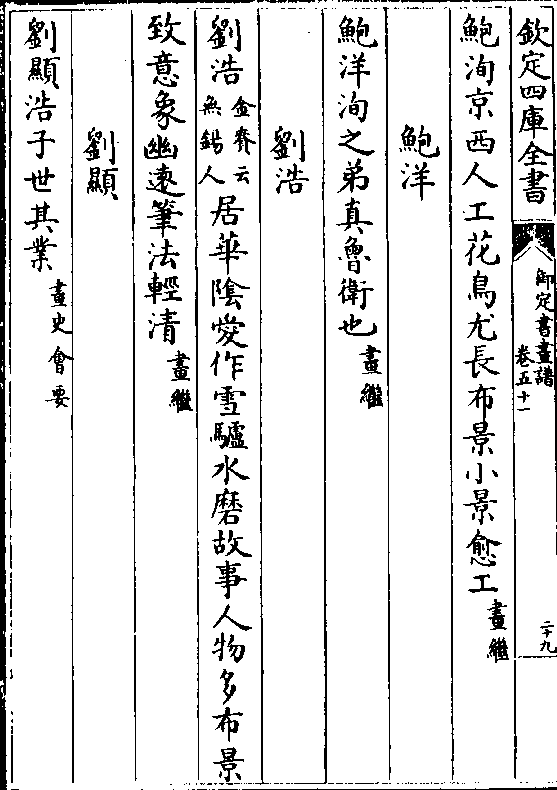 欽定四庫全書
御定書畫譜
卷五十一
二十九
鮑洵京西人工花鳥尤長布景小景愈工畫繼
鮑洋
鮑洋洵之弟真魯衛也畫繼
劉浩
劉浩金賚云無錫人居華陰愛作雪驢水磨故事人物多布景
致意象幽遠筆法輕清畫繼
劉顯
劉顯浩子世其業畫史會要